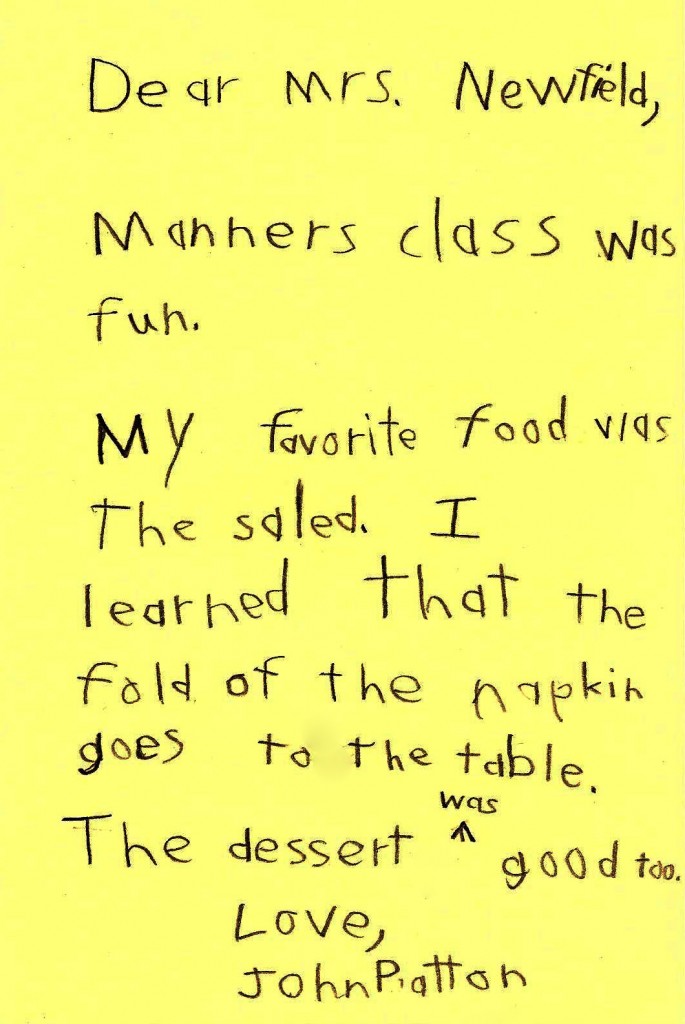 Dear Mrs. Newfield,
Manners class was
fun.
My favorite food was
The saled. I
learned that the
fold of the napkin
goes to the table.
was
The dessert ^ good too.
Love,
John Patton